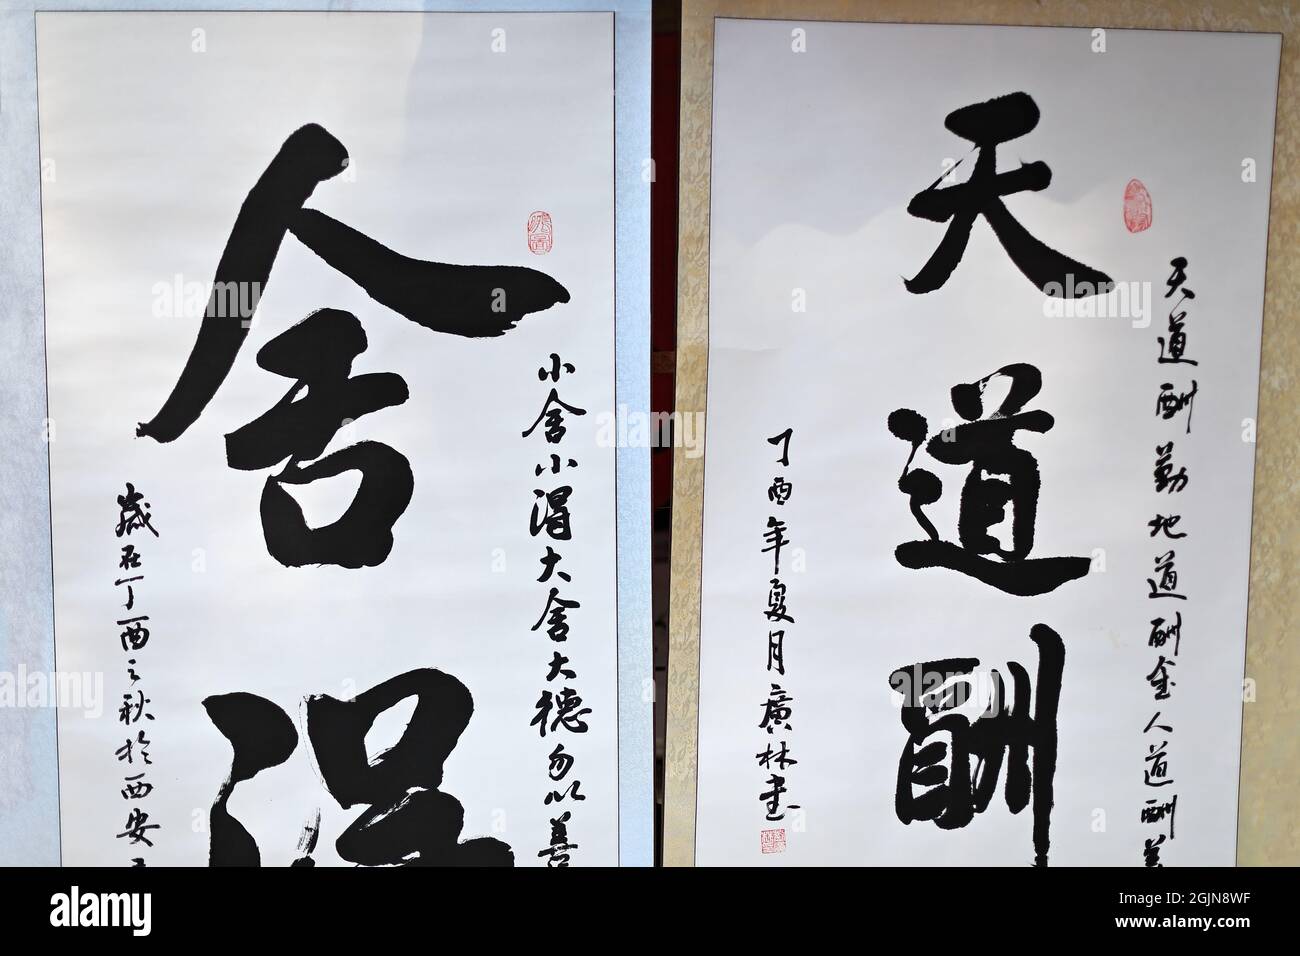 舍得
小舍小得大舍大德勿以善
歲在丁酉之秋於西安
天道酬
天道酬勤地道酬金人道酬善
丁酉年夏月廣林書
alamy
Image ID: 2GJN8WF
www.alamy.com